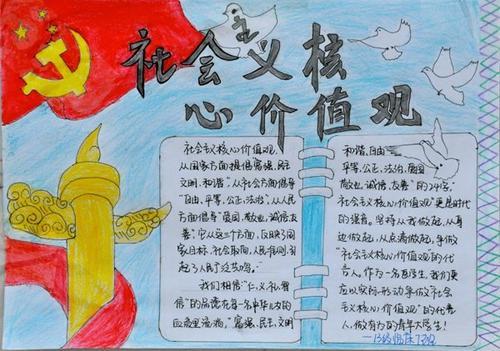 社会主义核
心价值观
社会主义核心价值观,
从国家方面提倡富强、民主
文明、和谐"从社会方面倡导
"自由、平等、公正、法治",从人民
方面倡导"爱国、敬业、诚信、友
善"。它从这个方面,反映了国
家目标、社会取向、人民准则,引
起了人民广泛共鸣。
我们相信"仁、义、礼、智
信"的品德先每一名中华儿女的
血液里流淌,"富强、民主、文明
和谐、自由
平等、公正、法治、爱国
敬业、诚信、友善"的24字。
社会主义核心价值观"更是时代
的强音。坚持从我做起,从身
边做起,从点滴做起,争做
"社会主义核心价值观"的代
言人,作为一名医学生,我们更
应以实际行动争做社会
主义核心价值观"的代言
人,做有为的青年大学生!